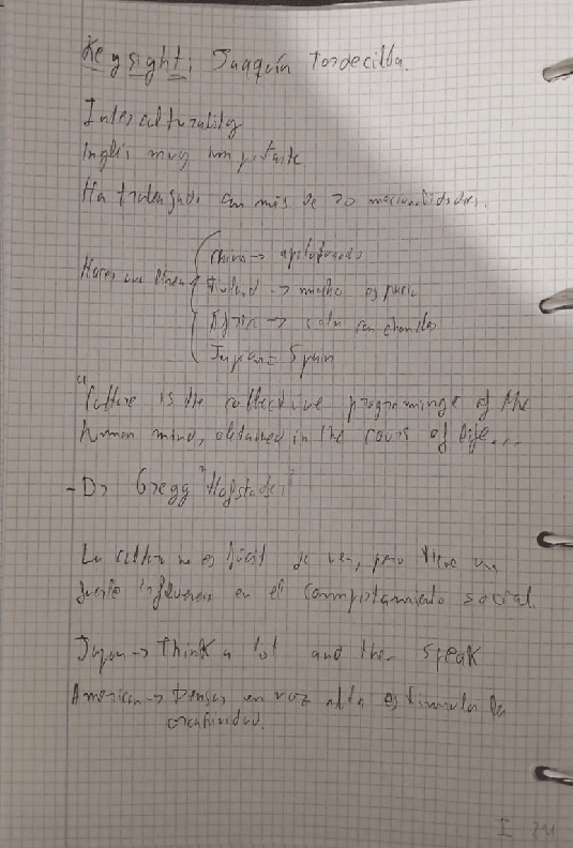 Keysight: Joaquín Tordecilla.
Interculturality
Inglés muy importante.
Ha trabajado con más de 20 nacionalidades.
Hacer una línea
China → apelotonados
Finland → mucho espacio
→ cola con
Japan = Spain
"Culture is the collective programminge of the
human mind, obtained in the cours of life...
- Dr Gregg "Hofstade"
La cultura no es fácil de ver, pero tiene una
fuerte influencia en el comportamiento social.
Japan → Think a lot and then speak
American → Pensar en voz alta estimula la
creatividad.
I